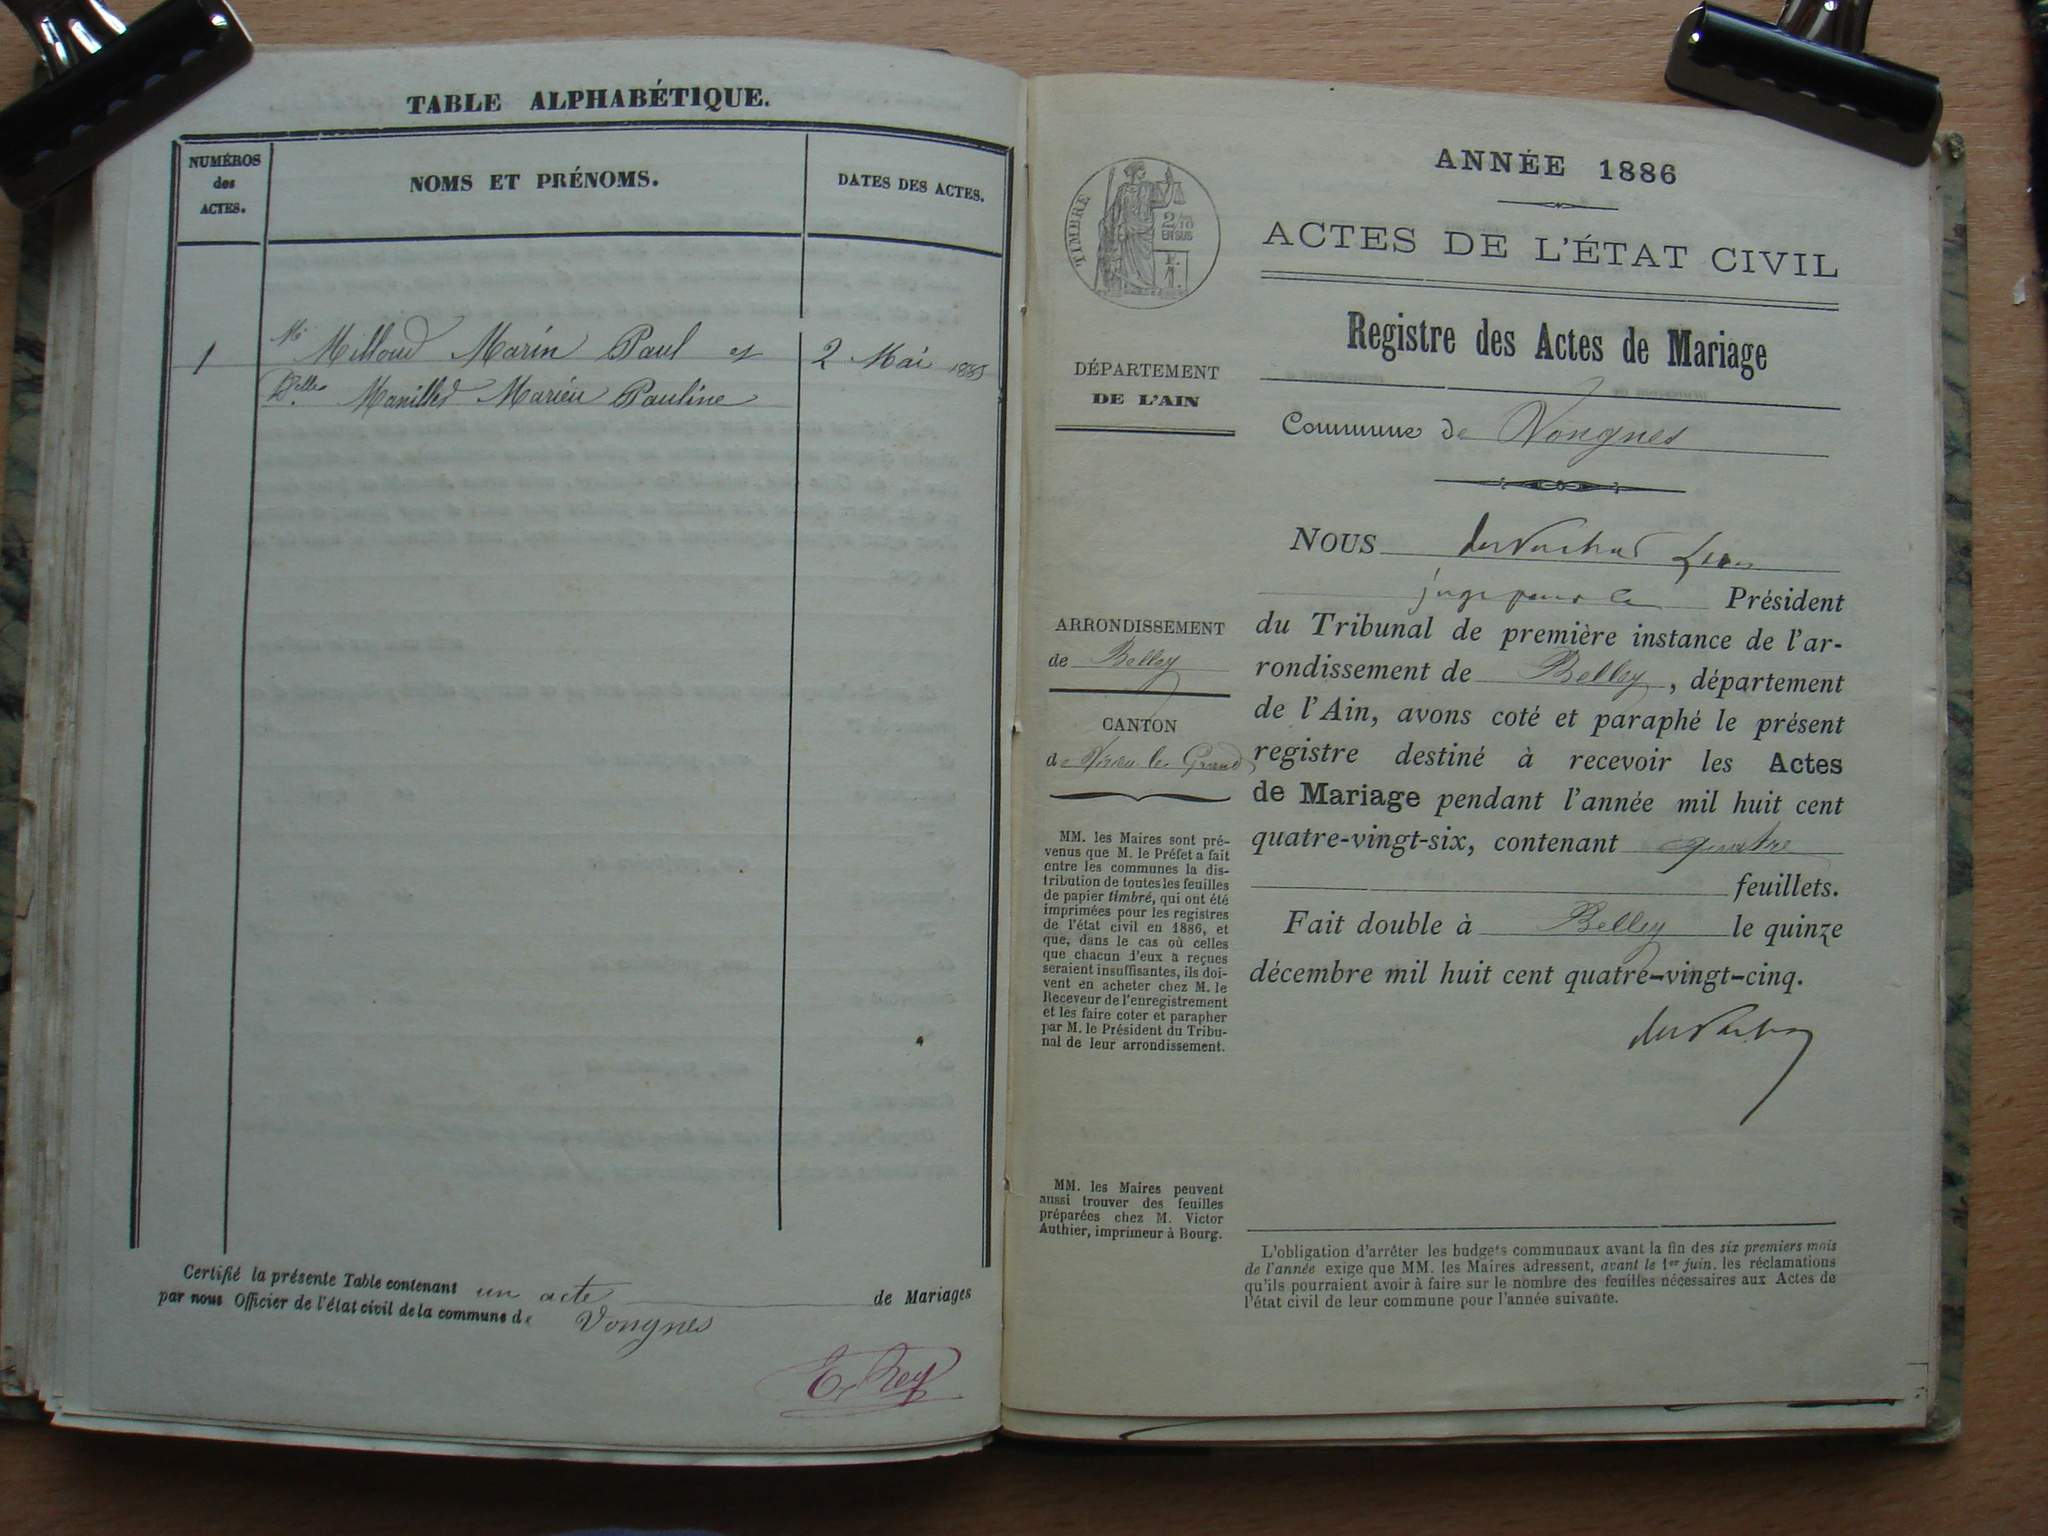 TABLE ALPHABÉTIQUE.
NUMÉROS
des
ACTES.
NOMS ET PRÉNOMS.
DATES DES ACTES.
1
Mr Milloud Marin Paul et
2 Mai 1885
Delle Pauline
Certifié la présente Table contenant un acte de Mariages
par nous Officier de l'état civil de la commune de Vongnes
E. Rey
ANNÉE 1886
ACTES DE L'ÉTAT CIVIL
TIMBRE
2/10
EN SUS
Registre des Actes de Mariage
DÉPARTEMENT
DE L'AIN
Commune de Vongnes
NOUS
juge pour le Président
du Tribunal de première instance de l'ar-
rondissement de Belley, département
de l'Ain, avons coté et paraphé le présent
registre destiné à recevoir les Actes
de Mariage pendant l'année mil huit cent
quatre-vingt-six, contenant quatre
feuillets.
Fait double à Belley le quinze
décembre mil huit cent quatre-vingt-cinq.
ARRONDISSEMENT
de Belley
CANTON
de Virieu le Grand
MM. les Maires sont pré-
venus que M. le Préfet a fait
entre les communes la dis-
tribution de toutes les feuilles
de papier timbré, qui ont été
imprimées pour les registres
de l'état civil en 1886, et
que, dans le cas où celles
que chacun d'eux a reçues
seraient insuffisantes, ils doi-
vent en acheter chez M. le
Receveur de l'enregistrement
et les faire coter et parapher
par M. le Président du Tribu-
nal de leur arrondissement.
MM. les Maires peuvent
aussi trouver des feuilles
préparées chez M. Victor
Authier, imprimeur à Bourg.
L'obligation d'arrêter les budgets communaux avant la fin des six premiers mois
de l'année exige que MM. les Maires adressent, avant le 1er juin, les réclamations
qu'ils pourraient avoir à faire sur le nombre des feuilles nécessaires aux Actes de
l'état civil de leur commune pour l'année suivante.